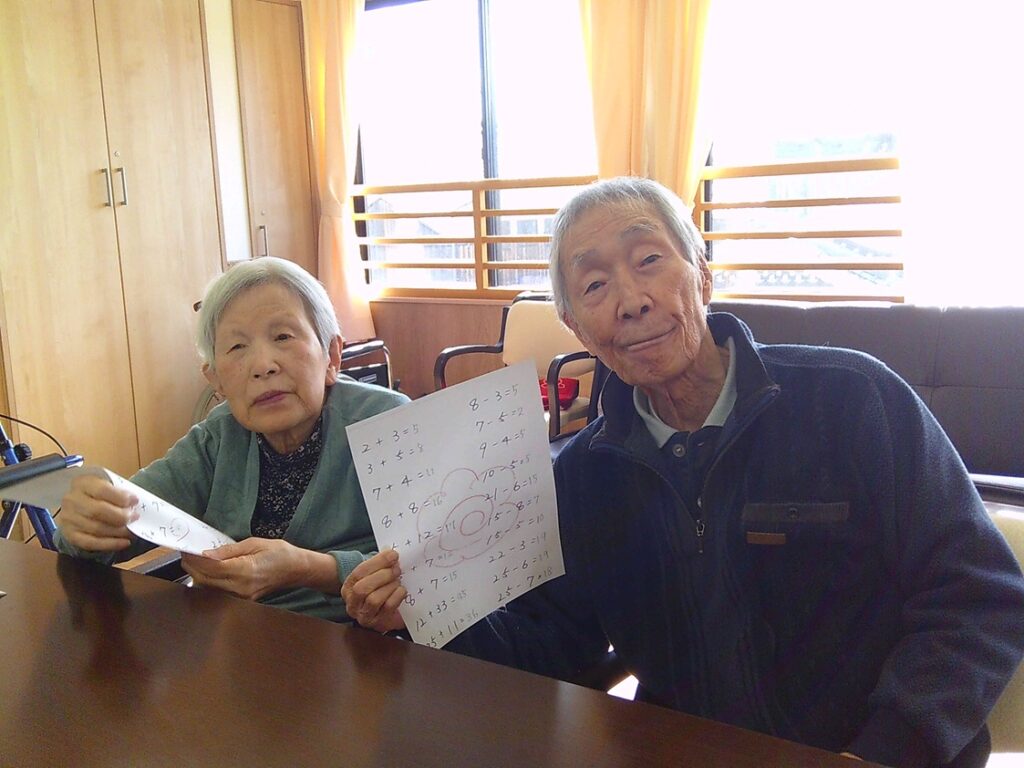 2 + 3 = 5
3 + 5 = 8
7 + 4 = 11
8 + 8 = 16
+ 12 = 17
+ 7 =
8 + 7 = 15
12 + 33 = 45
5 + 11 = 36
8 - 3 = 5
7 - 5 = 2
9 - 4 = 5
10 - 5 = 5
21 - 6 = 15
15 - 8 = 7
15 - 5 = 10
22 - 3 = 19
25 - 6 = 19
25 - 7 = 18